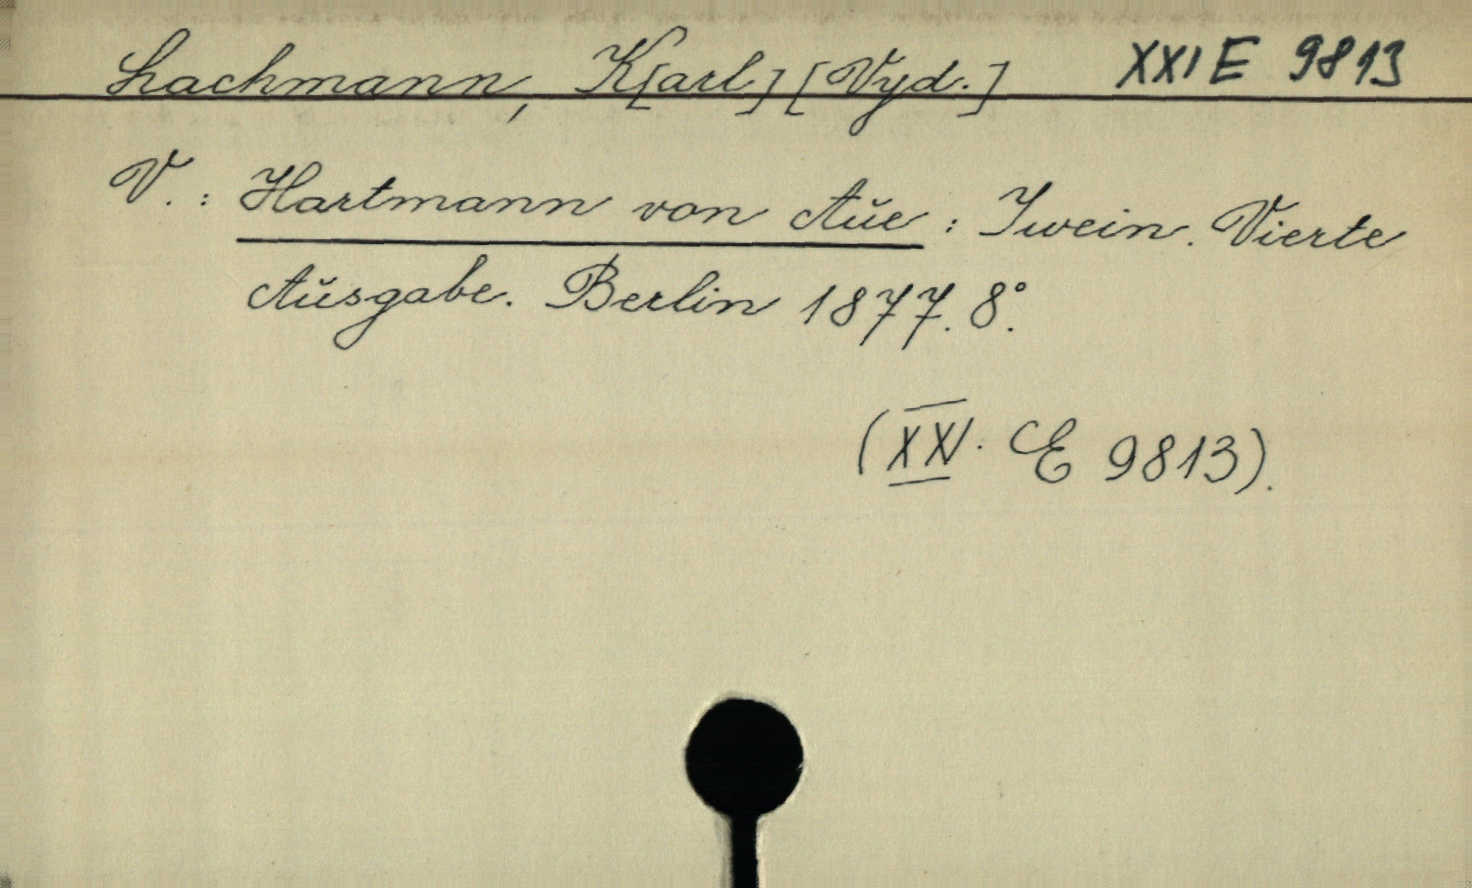 Lachmann, K[arl] [Vyd.] XXI E 9813
V. : Hartmann von Aue : Iwein. Vierte
Ausgabe. Berlin 1877. 8°.
(XXI. E 9813).